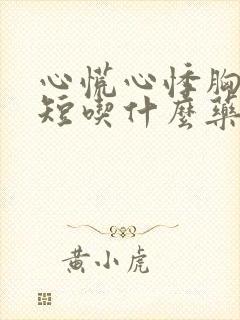 心慌心悸胸
短喫什麼藥
黃小虎